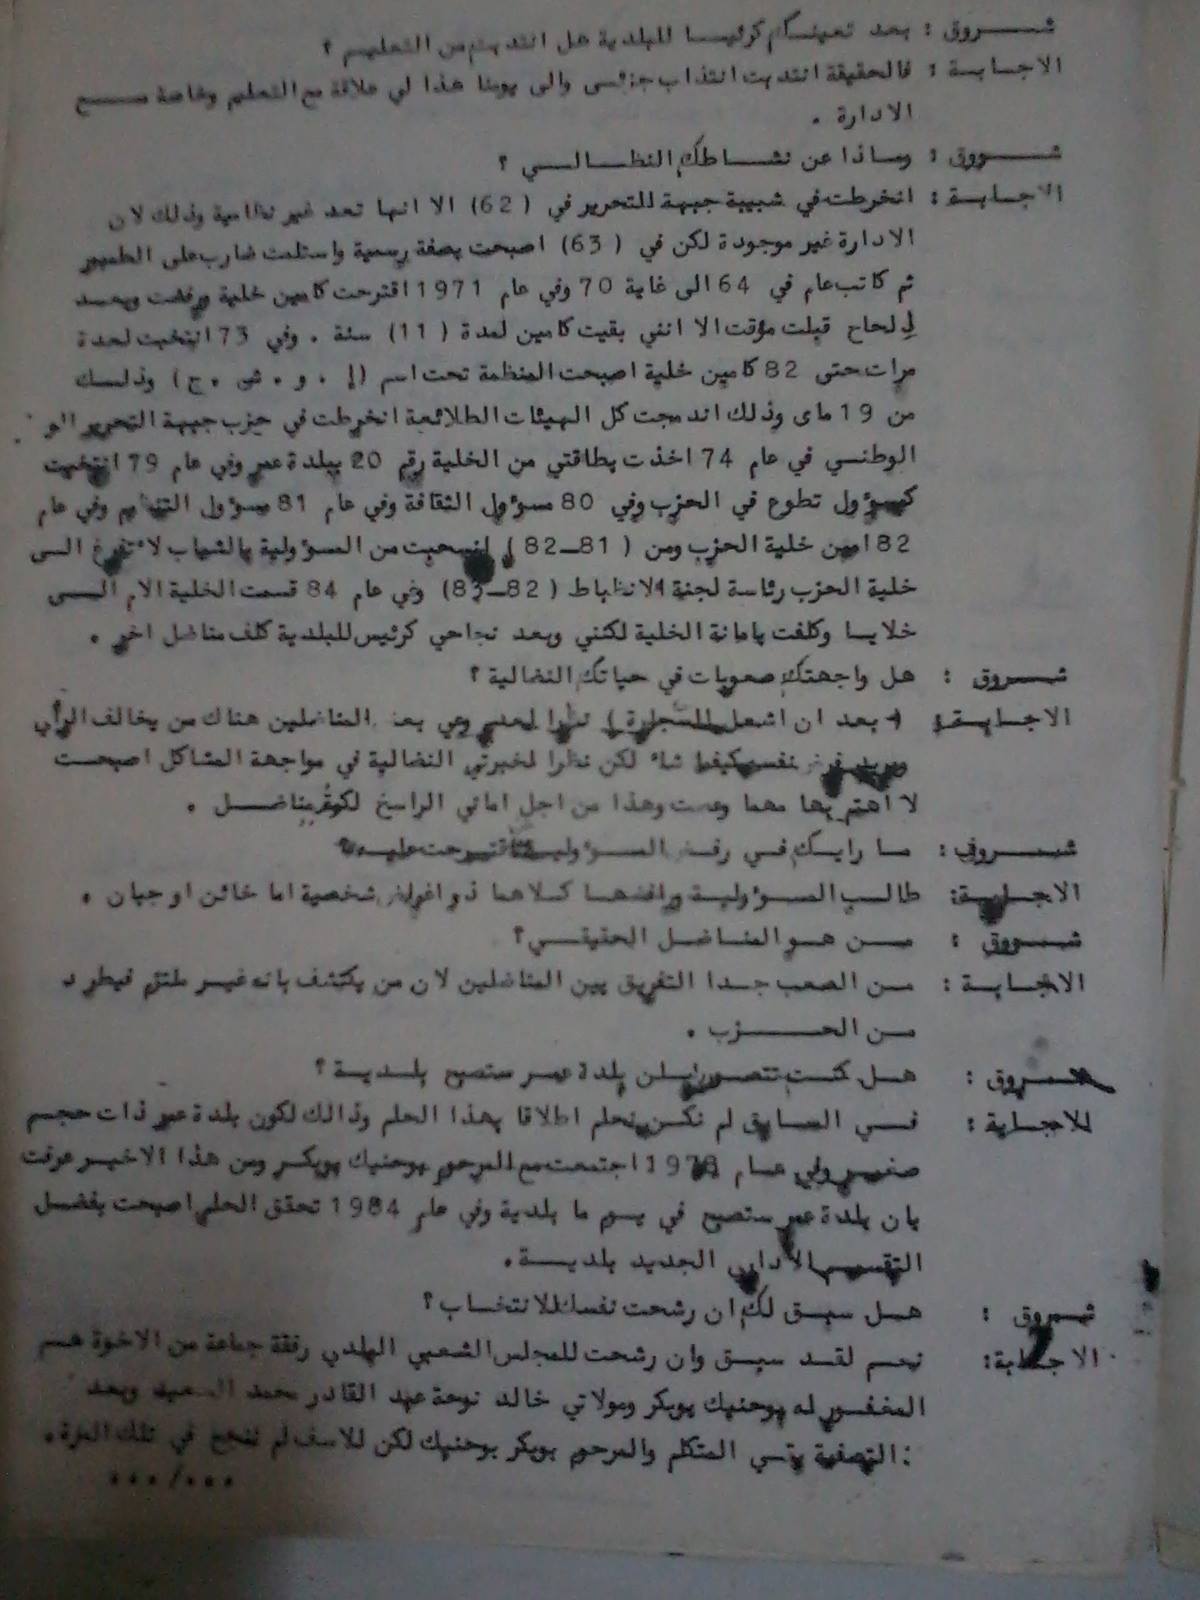 شـــروق : بعد تعينكم كرئيسا للبلدية هل انتدبتم من التعليم ؟
الاجـابـة : فالحقيقة انتدبت انتداب جزئسي والى يومنا هذا لي علاقة مع التعليم وخاصة مـــع
الادارة .
شـــروق : ومـاذا عن نشـاطك النظـالـــي ؟
الاجـابـة : انخرطت في شبيبة جبهة للتحرير في ( 62) الا انها تعد غير نظامية وذلك لان
الادارة غير موجودة لكن في ( 63) اصبحت بصفة رسمية واستلمت ضارب على
ثم كاتب عام في 64 الى غاية 70 وفي عام 1971 اقترحت كامين خلية ورفضت وبعـد
لحاح قبلت مؤقت الا انني بقيت كامين لمدة ( 11) سنة . وفي 73 انتخبت لعدة
مرات حتى 82 كامين خلية اصبحت المنظمة تحت اسم (إ . و . ش . ج ) وذلـك
من 19 ماى وذلك اندمجت كل الهيئات الطلائعية انخرطت في حزب جبهة التحرير
الوطنسي في عام 74 اخذت بطاقتي من الخلية رقم 20 ببلدة عمر وفي عام 79 انتخبت
كمسؤول تطوع في الحزب وفي 80 مسؤول الثقافة وفي عام 81 مسؤول التنظيم وفي عام
82 امين خلية الحزب ومن ( 81ــ82 ) انسحبت من المسؤولية بالشباب لاتفرغ الـى
خلية الحزب رئاسة لجنة الانظباط ( 82ــ83) وفي عام 84 قسمت الخلية الام الـــى
خلايـا وكلفت بامانة الخلية لكنني وبعد نجاحي كرئيس للبلدية كلف مناضل اخر .
شـــروق : هل واجهتك صعوبات في حياتك النضالية ؟
الاجـابـة : بعد ان اشعل نظرا لعدم وعي بعض المناضلين هناك من يخالف الرأي
ويريد فرض نفسه كيفما شاء لكن نظرا لخبرتي النضالية في مواجهة المشاكل اصبحـت
لا اهتم بها مهما وهذا من اجل اماني الراسخ مناضــل .
شـــروق : مـا رايـك فـي رفـض المسـؤوليـة عليـه ؟
الاجـابـة : طالـب المسـؤوليـة ورافضهـا كـلاهما ذو اغراض شخصية اما خائن او جبان .
شـــروق : مــن هـو المنـاضـل الحقيقــي ؟
الاجـابـة : مـن الصعب جـدا التفريق بين المناضلين لان من يكتشف بانه غيـر ملتزم فيطرد
مـن الحـــزب .
شـــروق : هـل كنـت تتصـور بـان بلدة عمـر ستصبح بلـديـة ؟
الاجـابـة : فــي السـابق لم نكـن نحلم اطلاقا بهذا الحلم وذالك لكون بلدة عمر ذات حجـم
صغيـر وفي عـام اجتمعت مع المرحوم بوحنيك بوبكـر ومن هذا الاخيـر عرفت
بان بلدة عمر ستصبح في يـوم ما بلدية وفي عام 1984 تحقق الحلم اصبحت بفضـل
التقسيم الاداري الجديد بلديــة .
شـــروق : هـل سبـق لك ان رشحت نفسك للانتخـاب ؟
الاجـابـة : نعـم لقـد سبـق وان رشحت للمجلس الشعبي البلدي رفقة جماعة من الاخوة هـم
المغفـور له بوحنيك بوبكر ومولاتي خالد نوحة عبد القادر محمد السعيد وبعـد
: التصفية بقـي المتكلم والمرحوم بوبكر بوحنيك لكن للاسف لم ننجح في تلك المرة .
.../...